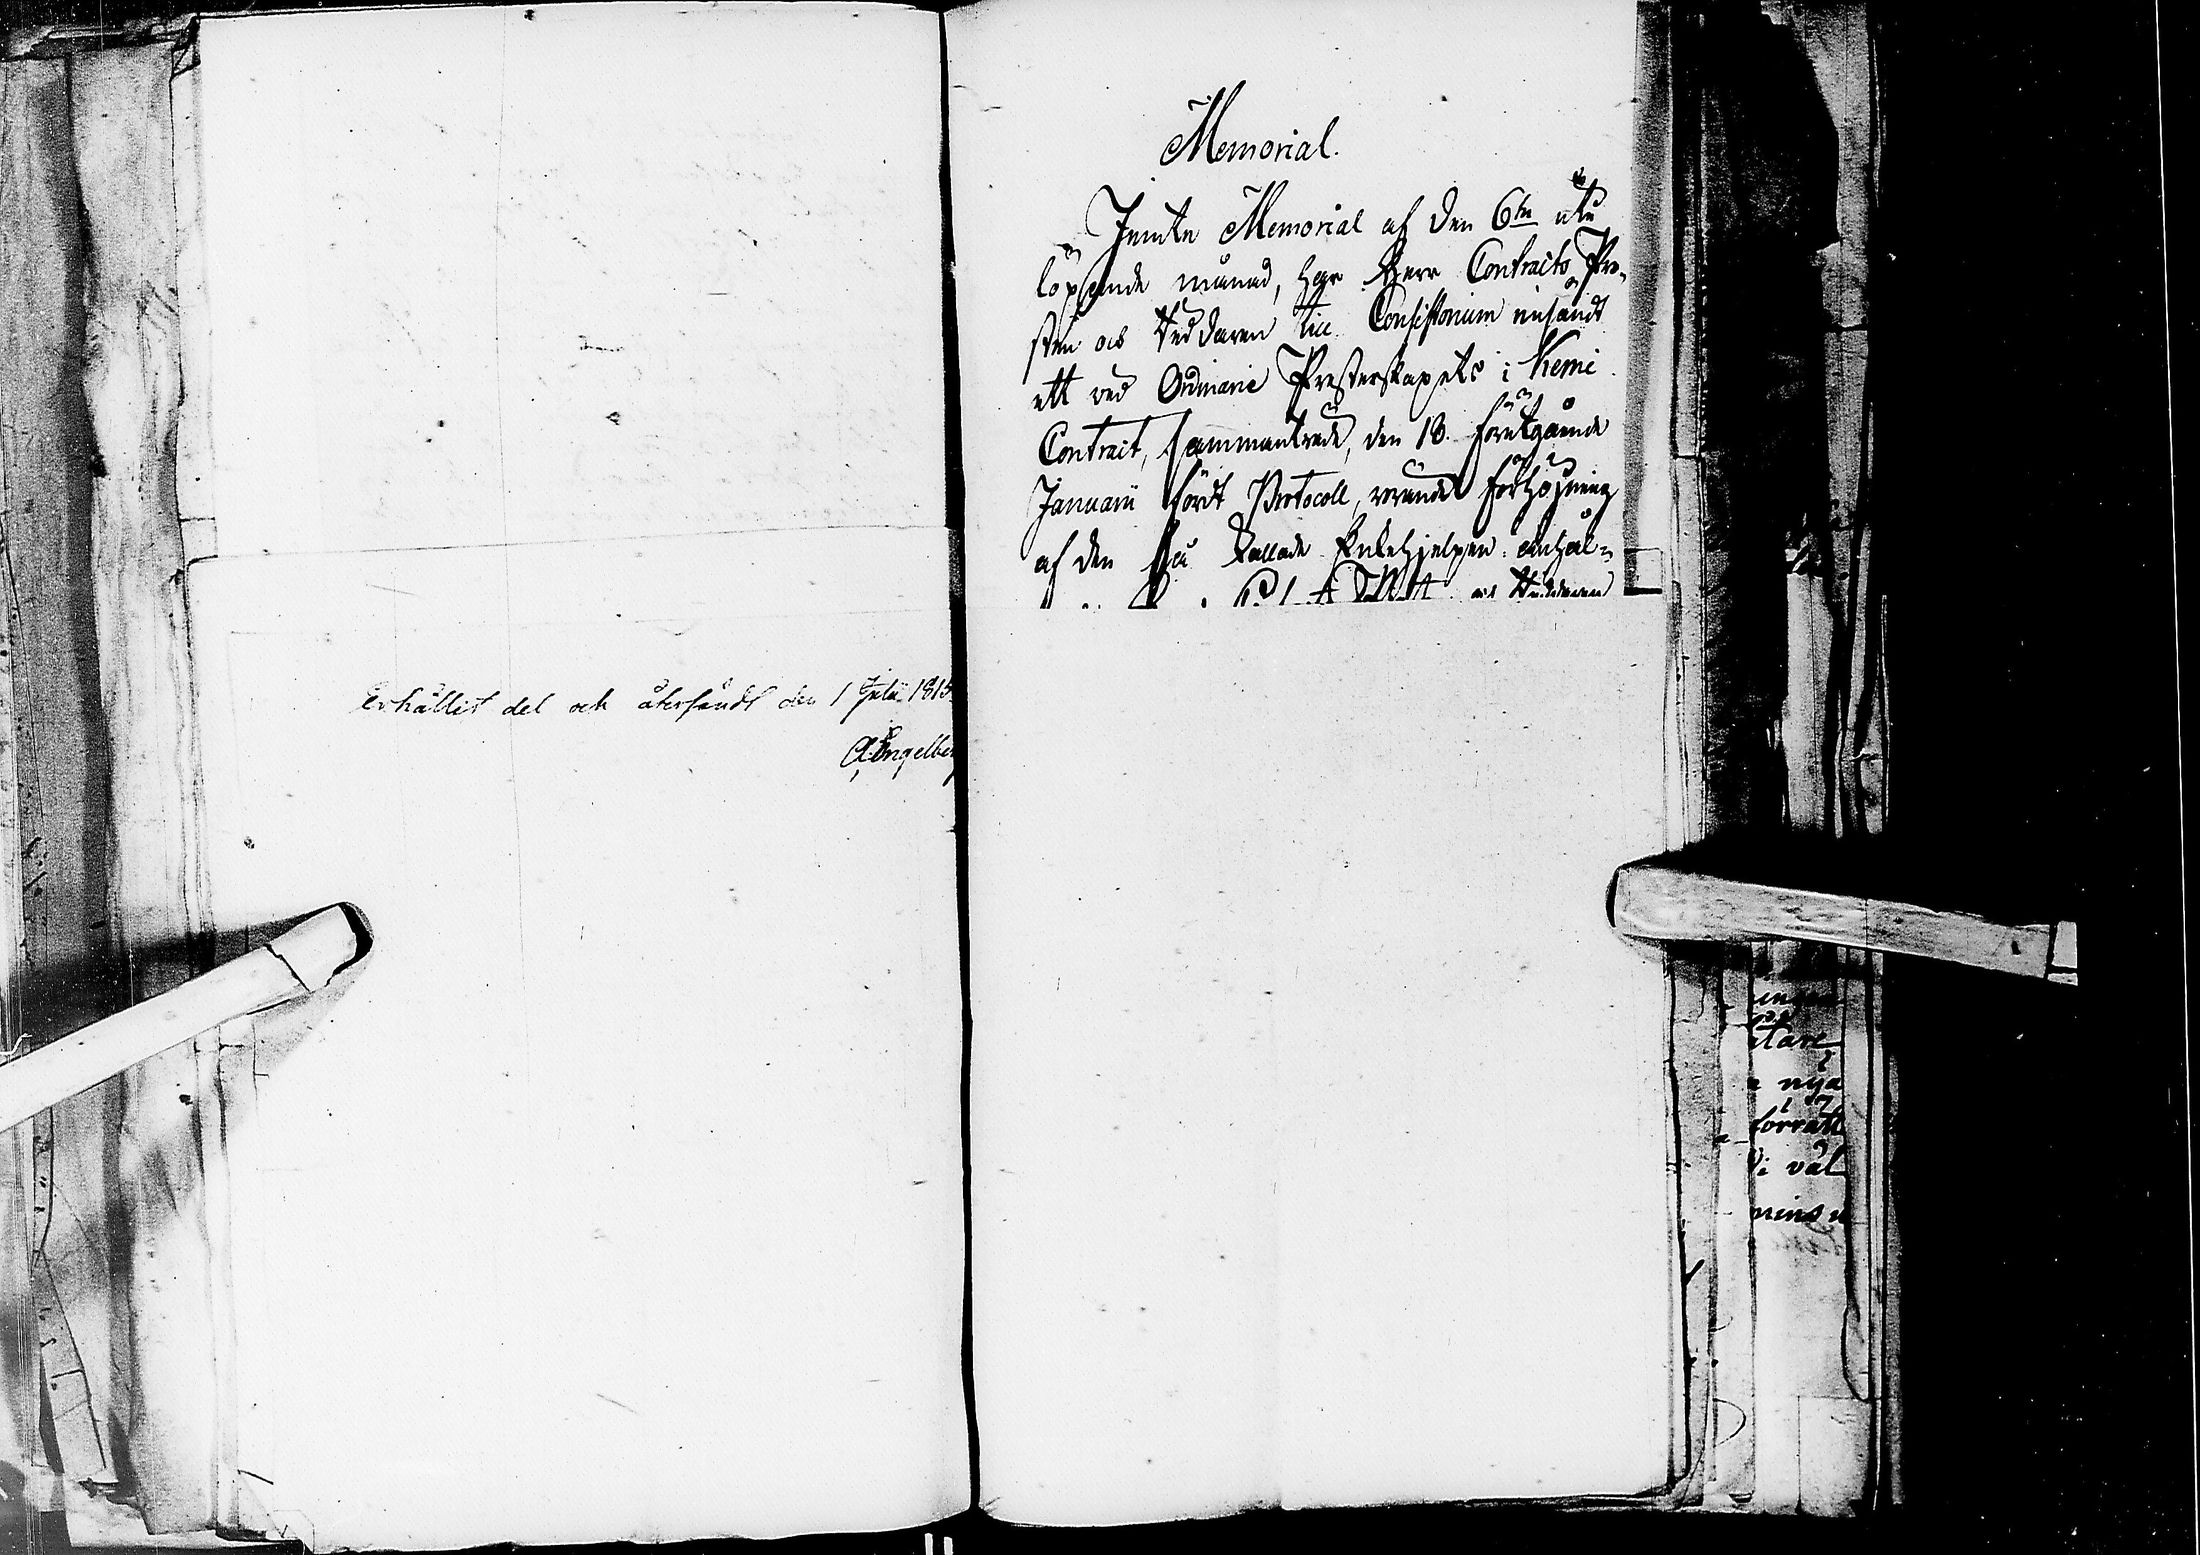 erhållit del och återsändt den 1 Julii 1815
A. Engelber
Memorial.
Jemte Memorial af den 6te uti
löpande månad, har Herr Contracts Pro-
sten och Riddaren till Consistorium insändt
ett ved Ordinarie Presterskapets i Kemi
Contract, sammanträde, den 18. förutgående
Januarii fördt Protocoll, rörande förhöjning
af den så kallade Enkehjelpen: anhål-
och Riddaren
ntare
nya
förrätt
väl